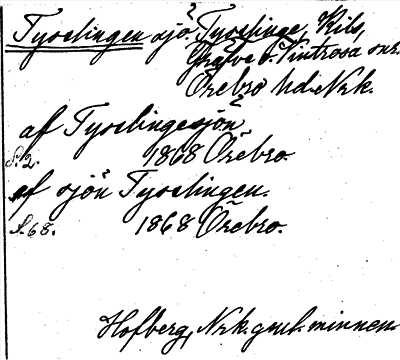 Tysslingen sjö. Tysslinge, Kils,
Gräfve o. Vintrosa snr.
Örebro hd. Nrk.
af Tysslingesjön
S. 2. 1868 Örebro.
af sjön Tysslingen.
S. 68. 1868 Örebro.
Hofberg, Nrk. gml. minnen.